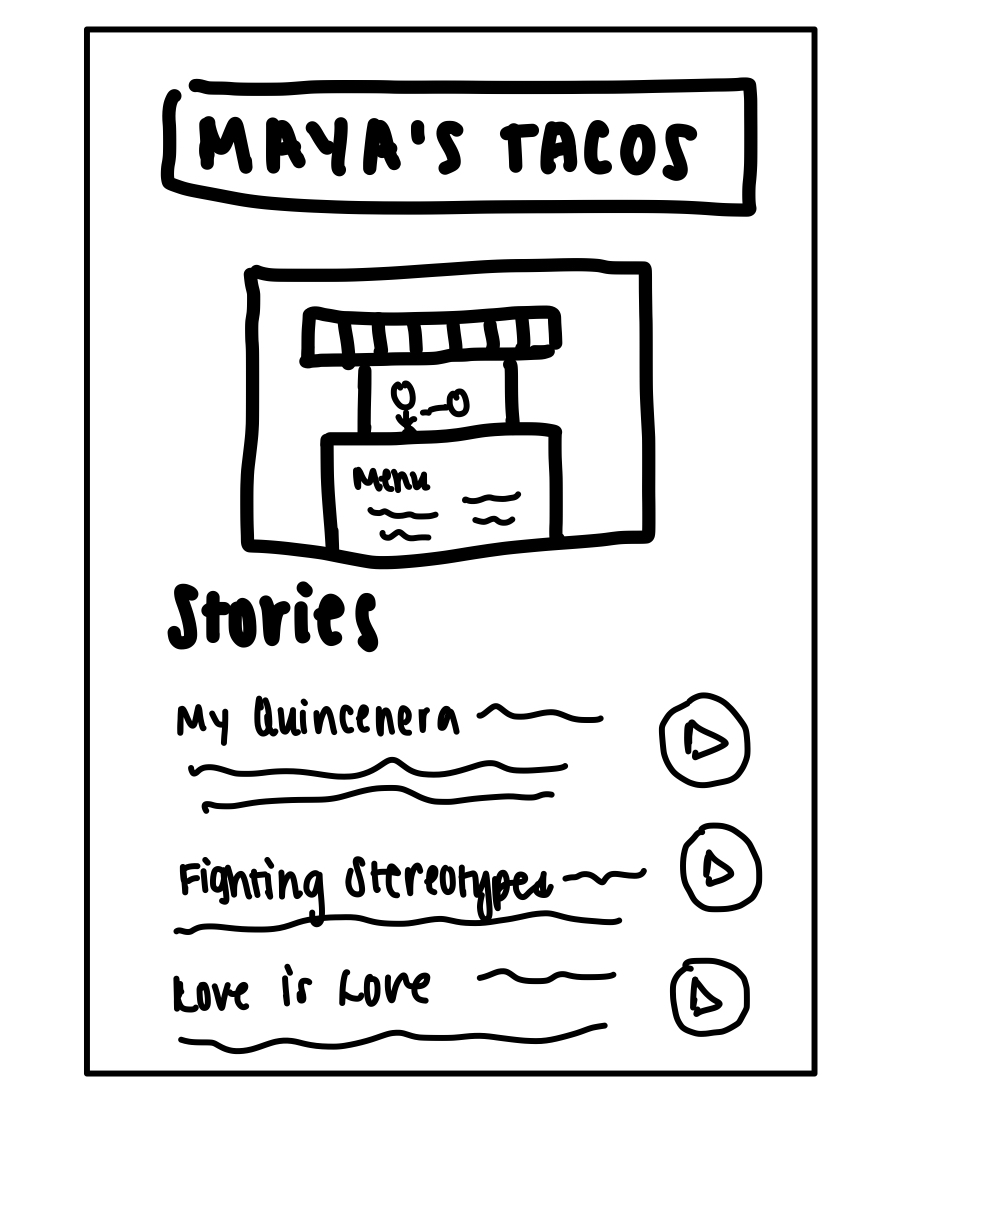 MAYA'S TACOS
Menu
Stories
My Quincenera
Fighting Stereotypes
Love is Love